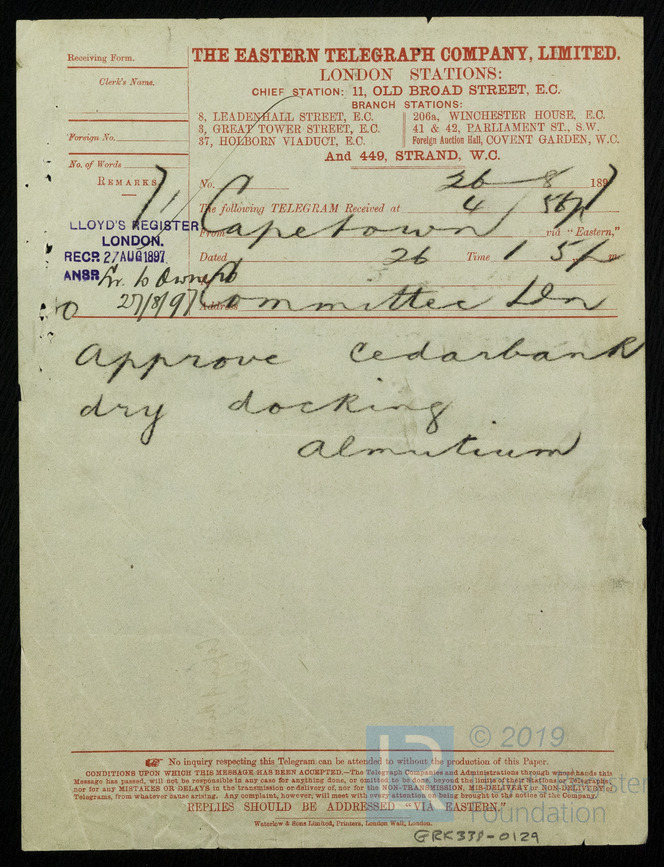 Receiving Form.
THE EASTERN TELEGRAPH COMPANY, LIMITED.
Clerk's Name.
LONDON STATIONS:
CHIEF STATION: 11, OLD BROAD STREET, E.C.
BRANCH STATIONS:
8, LEADENHALL STREET, E.C.
206a, WINCHESTER HOUSE, E.C.
3, GREAT TOWER STREET, E.C.
41 & 42, PARLIAMENT ST., S.W.
37, HOLBORN VIADUCT, E.C.
Foreign Auction Hall, COVENT GARDEN, W.C.
Foreign No.
And 449, STRAND, W.C.
No. of Words
REMARKS
No. 26 8 1897
The following TELEGRAM Received at 4/56p
From Capetown via "Eastern,"
LLOYD'S REGISTER
LONDON.
RECD 27 AUG 1897
ANSR
27/8/97
Dated 26 Time 1 5/p m
Address Committee Ldn
Approve Cedarbank
dry docking
Almutium
No inquiry respecting this Telegram can be attended to without the production of this Paper.
CONDITIONS UPON WHICH THIS MESSAGE HAS BEEN ACCEPTED.—The Telegraph Companies and Administrations through whose hands this
Message has passed, will not be responsible in any case for anything done, or omitted to be done, beyond the limits of their Stations or Telegraphs,
nor for any MISTAKES OR DELAYS in the transmission or delivery of, nor for the NON-TRANSMISSION, MIS-DELIVERY or NON-DELIVERY of
Telegrams, from whatever cause arising. Any complaint, however, will meet with every attention on being brought to the notice of the Company.
REPLIES SHOULD BE ADDRESSED "VIA EASTERN."
Waterlow & Sons Limited, Printers, London Wall, London.
© 2019
LR
Foundation
GRK338-0129